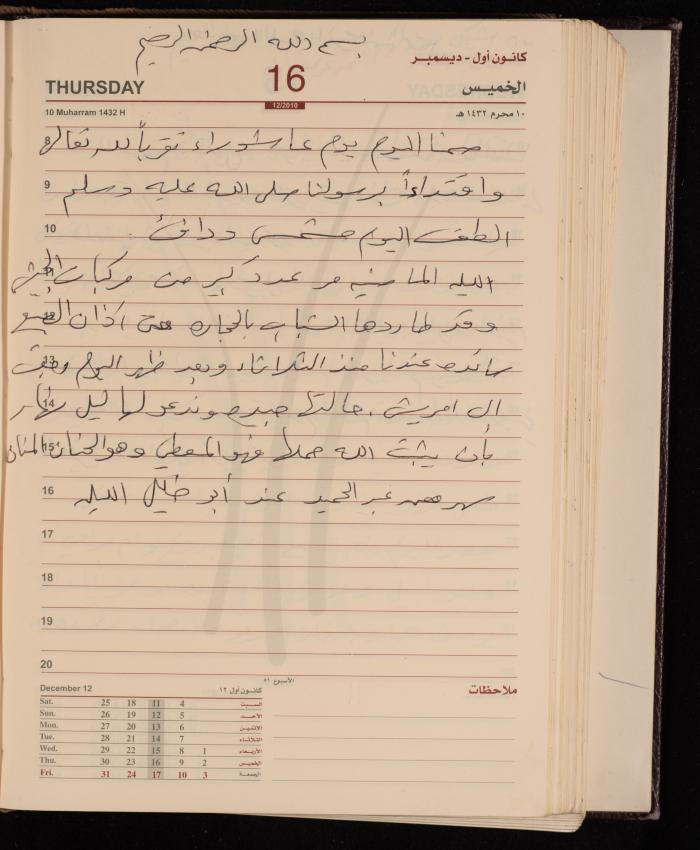 بسم الله الرحمن الرحيم
كانون أول - ديسمبر
THURSDAY 16 الخميس
12/2010
10 Muharram 1432 H ١٠ محرم ١٤٣٢ هـ
8 صمنا اليوم يوم عاشوراء تقرباً لله تعالى
9 واقتداءاً برسولنا صلى الله عليه وسلم
10 الطقس اليوم مشمس ودافئ .
11 الليله الماضيه مر عدد كبير من مركبات الجيش
12 وقد طاردها الشباب بالحجاره حتى اذان الصبح
13 عندنا منذ الثلاثاء وبعد ظهر اليوم
14 ال امريش . حالتها وندعو لها ليل نهار
15 بأن يثبت الله حملها فهو المعطي وهو الحنان المنان
16 سهر عبد الحميد عند أبو خليل الليله
17
18
19
20
December 12 كانون أول ١٢
الأسبوع ٥١
ملاحظات
Sat. 25 18 11 4 السبت
Sun. 26 19 12 5 الأحد
Mon. 27 20 13 6 الاثنين
Tue. 28 21 14 7 الثلاثاء
Wed. 29 22 15 8 1 الأربعاء
Thu. 30 23 16 9 2 الخميس
Fri. 31 24 17 10 3 الجمعة